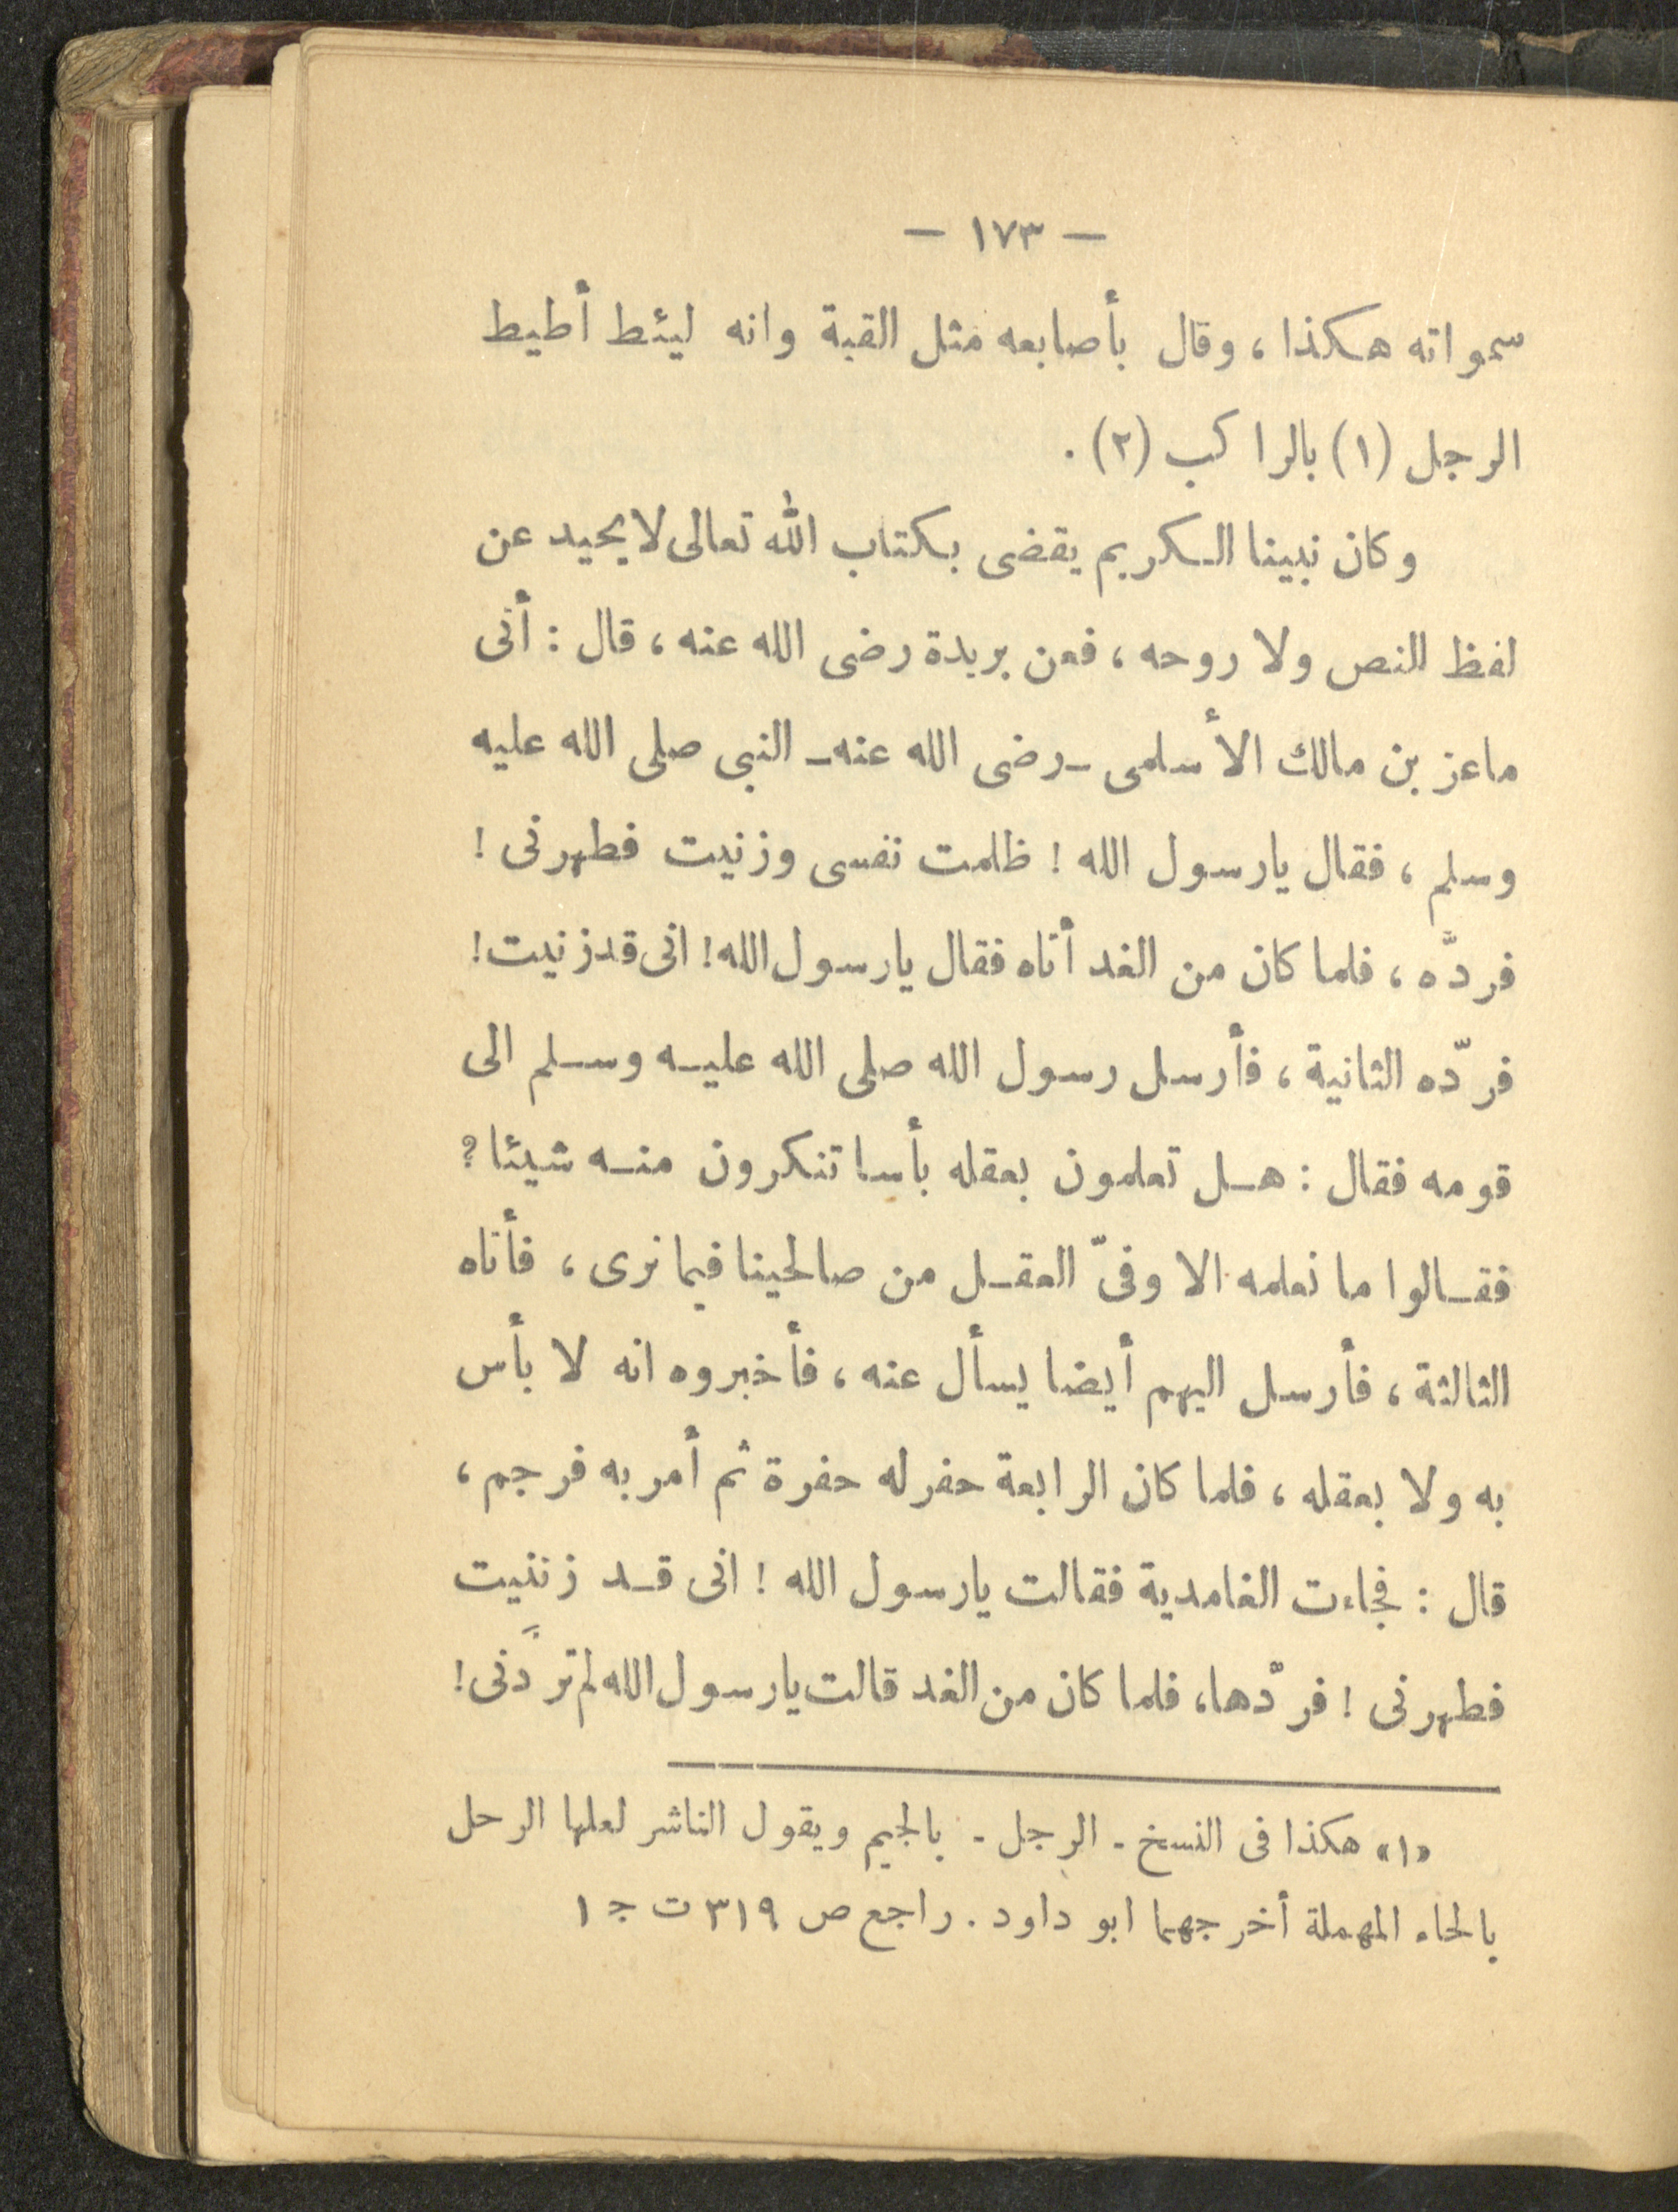 — ١٧٣ —
سمواته هكذا ، وقال بأصابعه مثل القبة وانه ليئط أطيط
الرجل (١) بالراكب (٢) .
وكان نبينا الكريم يقضى بكتاب الله تعالى لا يحيد عن
لفظ النص ولا روحه ، فعن بريدة رضى الله عنه ، قال : أتى
ماعز بن مالك الأسلمى -رضى الله عنه- النبى صلى الله عليه
وسلم ، فقال يارسول الله ! ظلمت نفسى وزنيت فطهرنى !
فردّه ، فلما كان من الغد أتاه فقال يارسول الله! انى قد زنيت!
فردّه الثانية ، فأرسل رسول الله صلى الله عليه وسلم الى
قومه فقال : هل تعلمون بعقله بأسا تنكرون منه شيئا ؟
فقالوا ما نعلمه الا وفىّ العقل من صالحينا فيما نرى ، فأتاه
الثالثة ، فأرسل اليهم أيضا يسأل عنه ، فأخبروه انه لا بأس
به ولا بعقله ، فلما كان الرابعة حفر له حفرة ثم أمر به فرجم ،
قال : فجاءت الغامدية فقالت يارسول الله ! انى قد زننيت
فطهرنى ! فردّها، فلما كان من الغد قالت يارسول الله لم تردَّنى!
«١» هكذا فى النسخ - الرجل - بالجيم ويقول الناشر لعلها الرحل
بالحاء المهملة أخرجهما ابو داود . راجع ص ٣١٩ ت ج ١